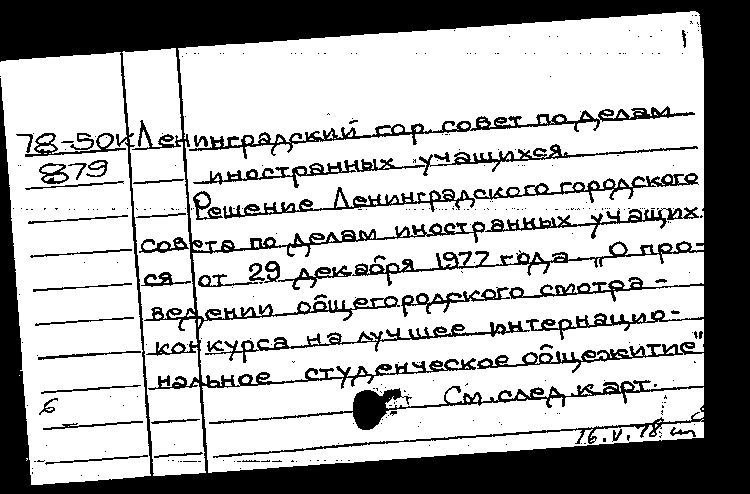 1
78-50к Ленинградский гор. совет по делам
879 иностранных учащихся.
Решение Ленинградского городского
совета по делам иностранных учащих-
ся от 29 декабря 1977 года „О про-
ведении общегородского смотра -
конкурса на лучшее интернацио-
нальное студенческое общежитие"
См. след. карт.
6
16.V.78